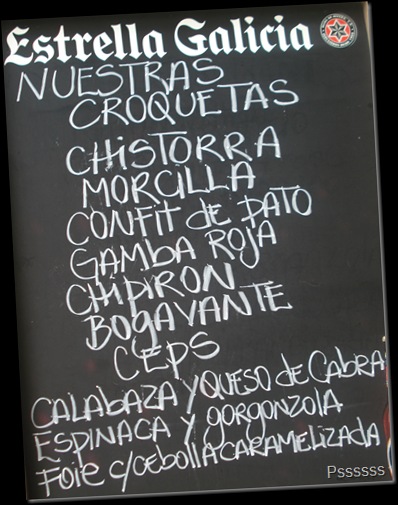 Estrella Galicia
NUESTRAS
CROQUETAS
CHiSTORRA
MORCILLA
CONFIT de PATO
GAMbA ROJA
CHIPIRON
BOGAVANTE
CEPS
CALAbAZA y QUESO de CAbRA
ESPINACA y gorgonzola
Foie c/cebolla CARAMELIZADA
Pssssss